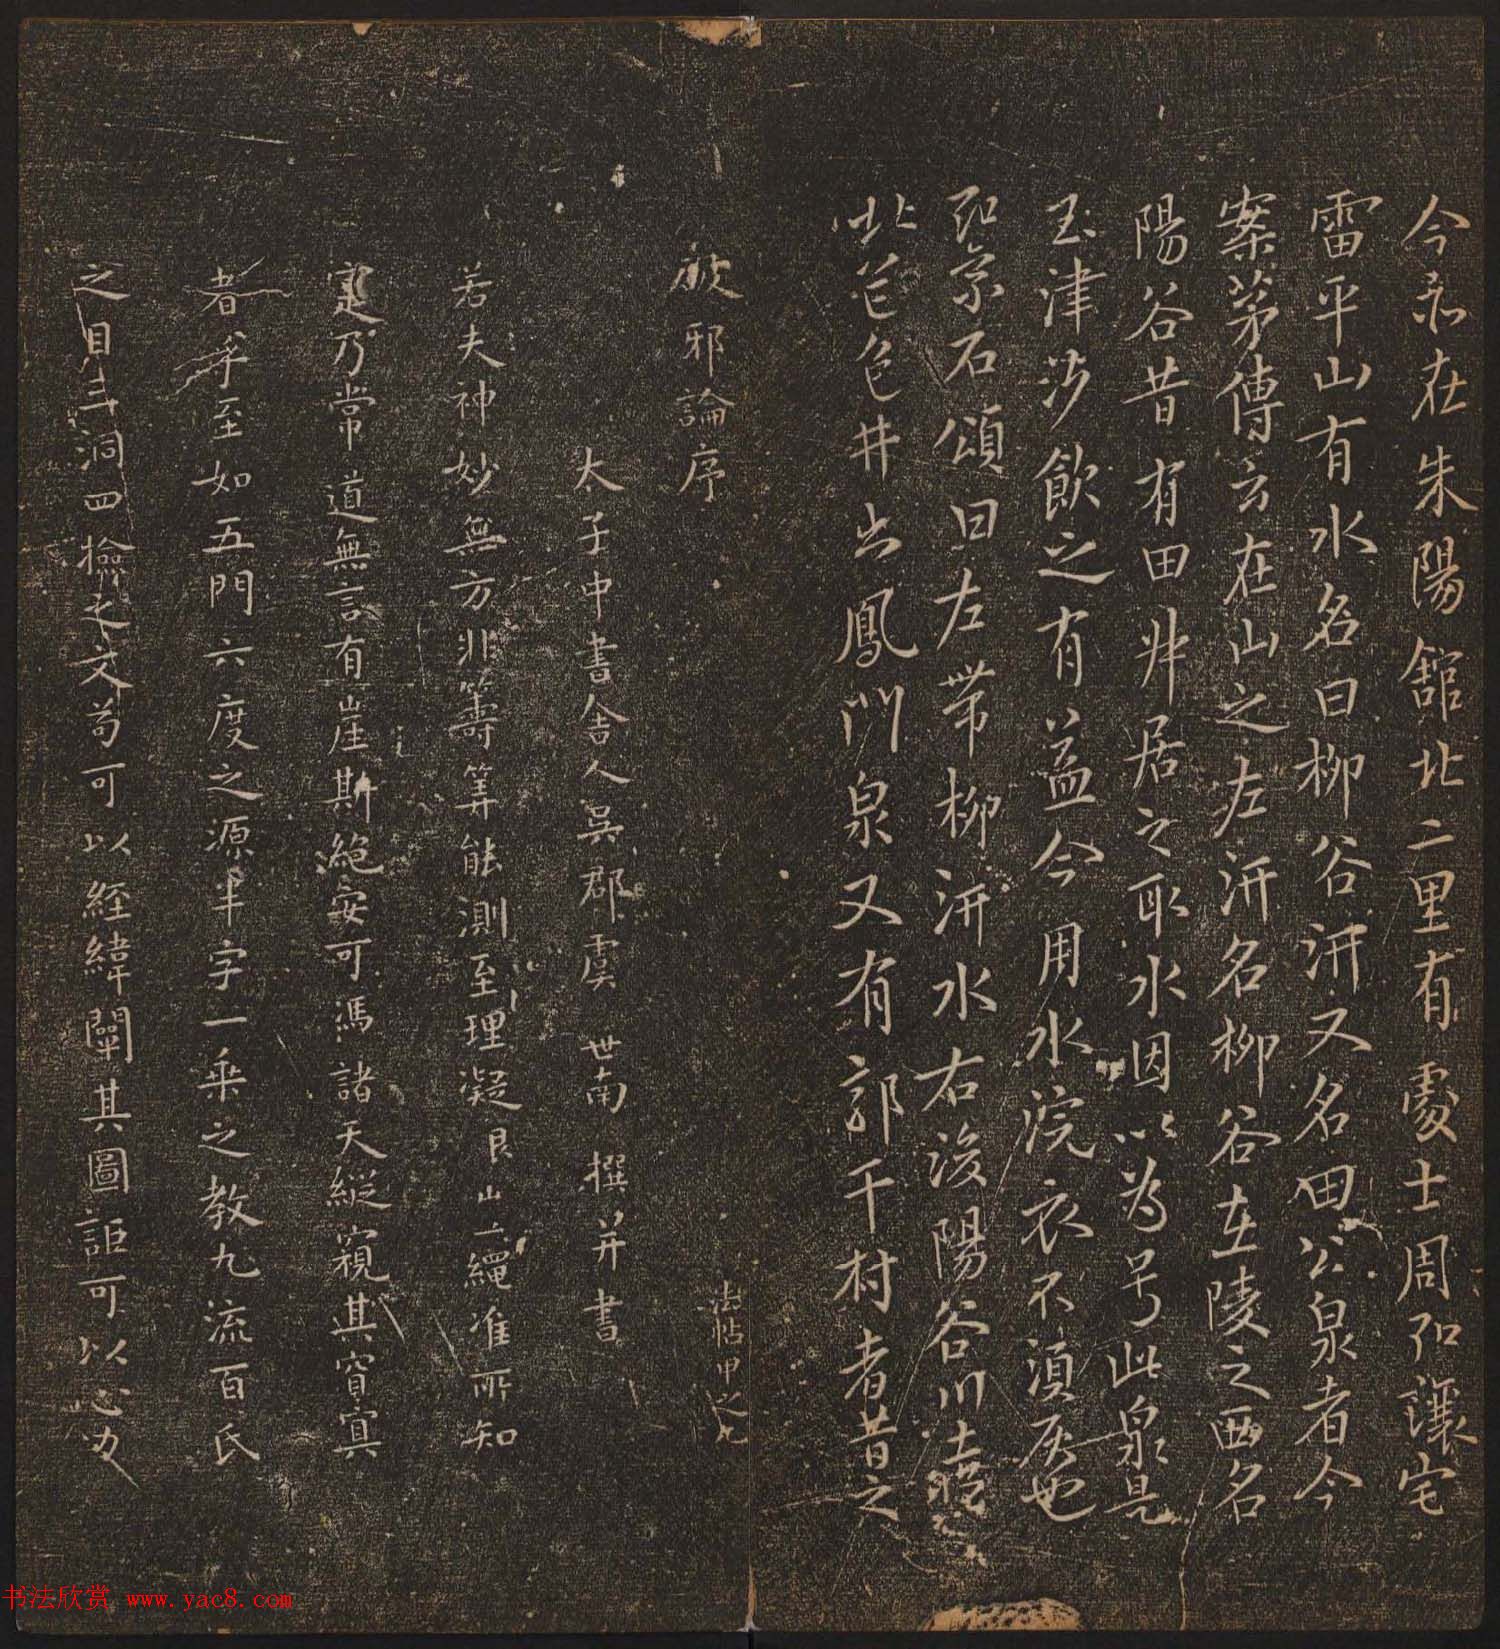 今亦在朱陽舘北二里有處士周弘讓宅
雷平山有水名曰柳谷汧又名田公泉者今
案茅傳云在山之左汧名柳谷在陵之西名
陽谷昔有田叟居之取水因以為号此泉是
玉津沙飲之有益今用水浣衣不湏灰也
弘景石頌曰左帶柳汧水右浚陽谷川
此邑井出鳳門泉又有郭千村者昔之
破邪論序
太子中書舎人吳郡虞世南撰并書
若夫神妙無方非籌筭能測至理凝 繩准所知
寔乃常道無言有崖斯絕安可馮諸天縱窺其窅寘
者乎至如五門六度之源半字一乗之教九流百氏
之目三洞四檢之文苟可以經緯闡其圖詎可以心力
法帖甲之九
书法欣赏 www.yac8.com